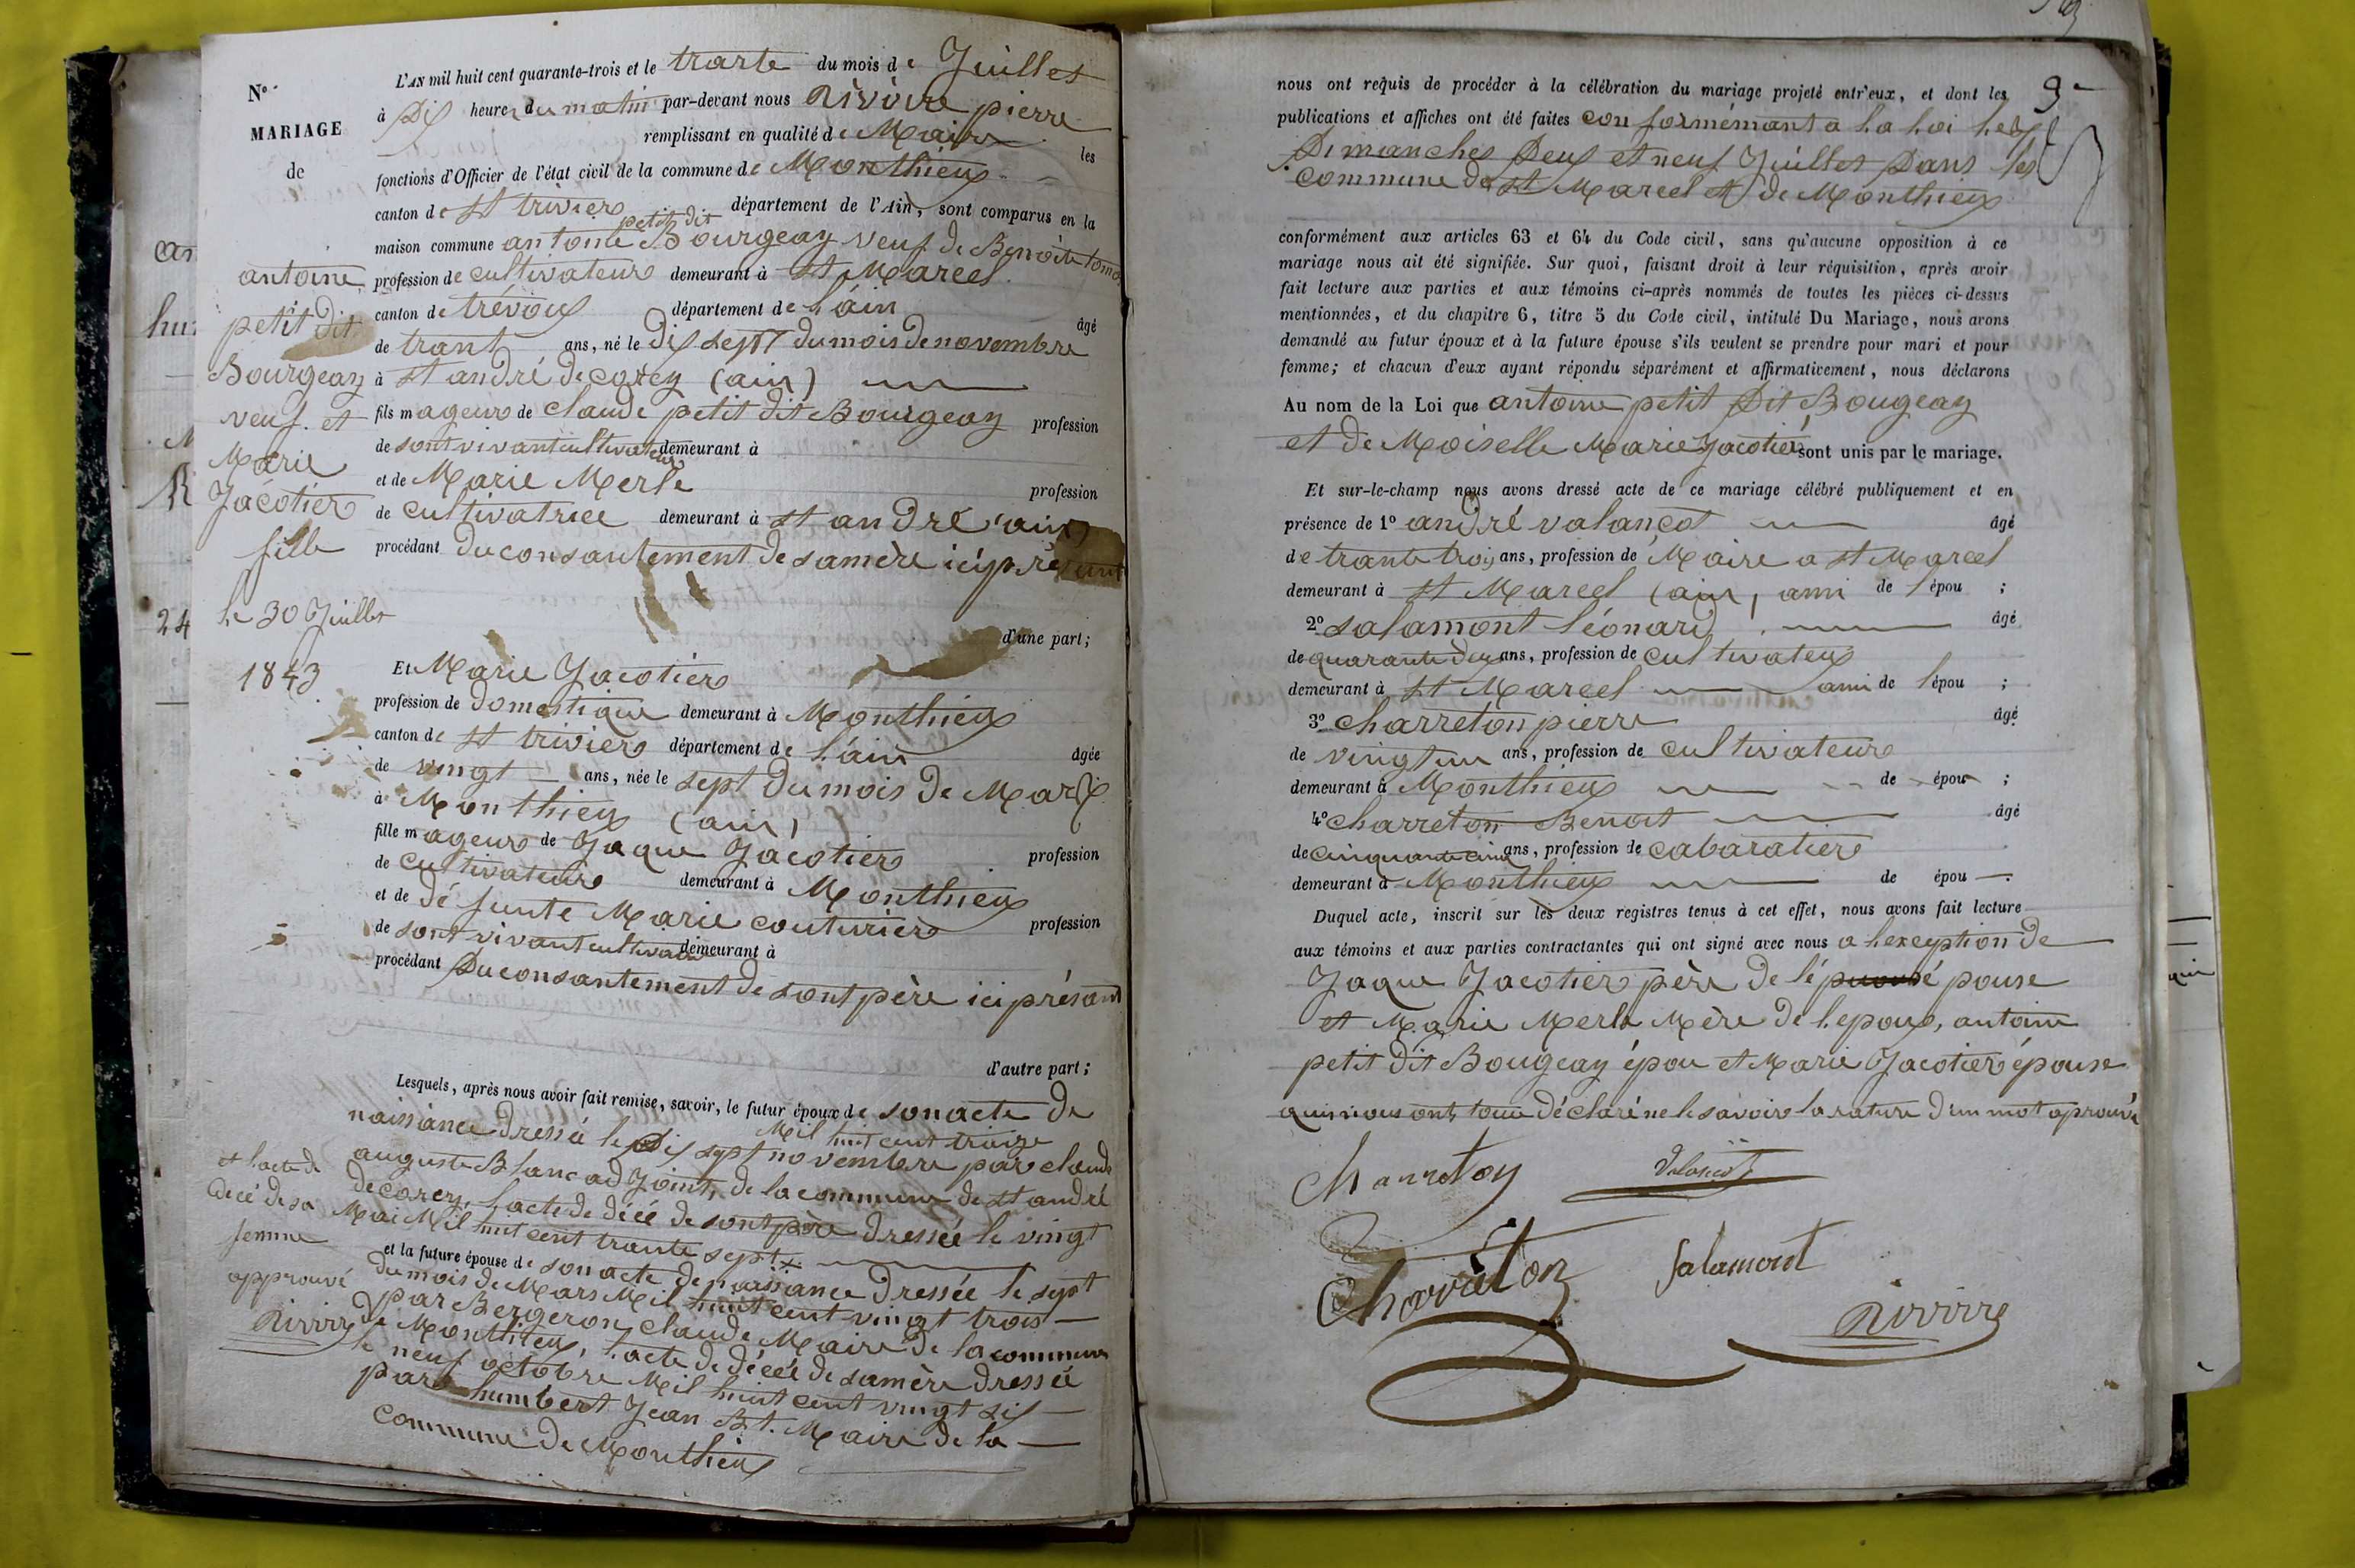 N°.
MARIAGE
de
antoine
petit dit
Bourgeay
veuf. et
Marie
Jacotier
fille
le 30 Juillet
1843
L'AN mil huit cent quarante-trois et le trante du mois de Juillet
à Dix heures du matin par-devant nous Rivoire pierre
remplissant en qualité de Maire les
fonctions d'Officier de l'état civil de la commune de Monthieux
canton de St triviers département de l'Ain, sont comparus en la
petit dit
maison commune antoine Bourgeay veuf de Benoite
profession de cultivateur demeurant à St Marcel
canton de trévoux département de l'ain âgé
de trant ans, né le Dix sept du mois de novembre
à St andré de corcy (ain)
fils mageur de claude petit dit Bourgeay profession
de sont vivant cultivateur demeurant à
et de Marie Merle profession
de cultivatrice demeurant à St andré (ain)
procédant du consantement de sa mère ici présant
d'une part;
Et Marie Jacotier
profession de domestique demeurant à Monthieux
canton de St triviers département de l'ain âgée
de vingt ans, née le sept du mois de Mars
à Monthieux (ain)
fille mageur de Jaque Jacotier profession
de cultivateur demeurant à Monthieux
et de défunte Marie couturier profession
de sont vivant cultivat demeurant à
procédant Du consantement de sont père ici présant
d'autre part;
Lesquels, après nous avoir fait remise, savoir, le futur époux de son acte de
Mil huit cent traize
naissance dressée le Dix sept novembre par claude
auguste Blanc adjoint, de la commune de St andré
decorcy, l'acte de décé de sont père dressée le vingt
Mai Mil huit cent trante sept x
et l'acte de
décé de sa
femme
approuvé
Rivoire
et la future épouse de son acte de naissance dressée le sept
du mois de Mars Mil huit cent vingt trois
par Bergeron claude Maire de la commune
de Monthieux, l'acte de décée de samère dressée
le neuf octobre Mil huit cent vingt six
par humbert Jean Bt. Maire de la
commune de Monthieux
9
nous ont requis de procéder à la célébration du mariage projeté entr'eux, et dont les
publications et affiches ont été faites conformémant a la loi les
Dimanches Deux et neuf Juillet Dans les
commune de St Marcel et de Monthieux
conformément aux articles 63 et 64 du Code civil, sans qu'aucune opposition à ce
mariage nous ait été signifiée. Sur quoi, faisant droit à leur réquisition, après avoir
fait lecture aux parties et aux témoins ci-après nommés de toutes les pièces ci-dessus
mentionnées, et du chapitre 6, titre 5 du Code civil, intitulé Du Mariage, nous avons
demandé au futur époux et à la future épouse s'ils veulent se prendre pour mari et pour
femme; et chacun d'eux ayant répondu séparément et affirmativement, nous déclarons
Au nom de la Loi que antoine petit Dit Bougeay
et de Moiselle Marie Jacotier sont unis par le mariage.
Et sur-le-champ nous avons dressé acte de ce mariage célébré publiquement et en
présence de 1° andré valançot âgé
de trante trois ans, profession de Maire a St Marcel
demeurant à St Marcel (ain) ami de l'épou ;
2° salamont léonard âgé
de quarante deux ans, profession de cultivateur
demeurant à St Marcel ami de l'épou ;
3° charreton pierre âgé
de vingt un ans, profession de cultivateur
demeurant à Monthieux de épou ;
4° charreton Benoit âgé
de cinquante cinq ans, profession de cabaratier
demeurant à Monthieux de épou .
Duquel acte, inscrit sur les deux registres tenus à cet effet, nous avons fait lecture
aux témoins et aux parties contractantes qui ont signé avec nous a lexception de
Jaque Jacotier père de lé épouse
et Marie Merle Mère de l'epoux, antoine
petit dit Bougeay épou et Marie Jacotier épouse
qui nous ont tous déclaré ne le savoir la rature d'un mot aprouvé
Charreton
Valancot
Charreton
Salamont
Rivoire